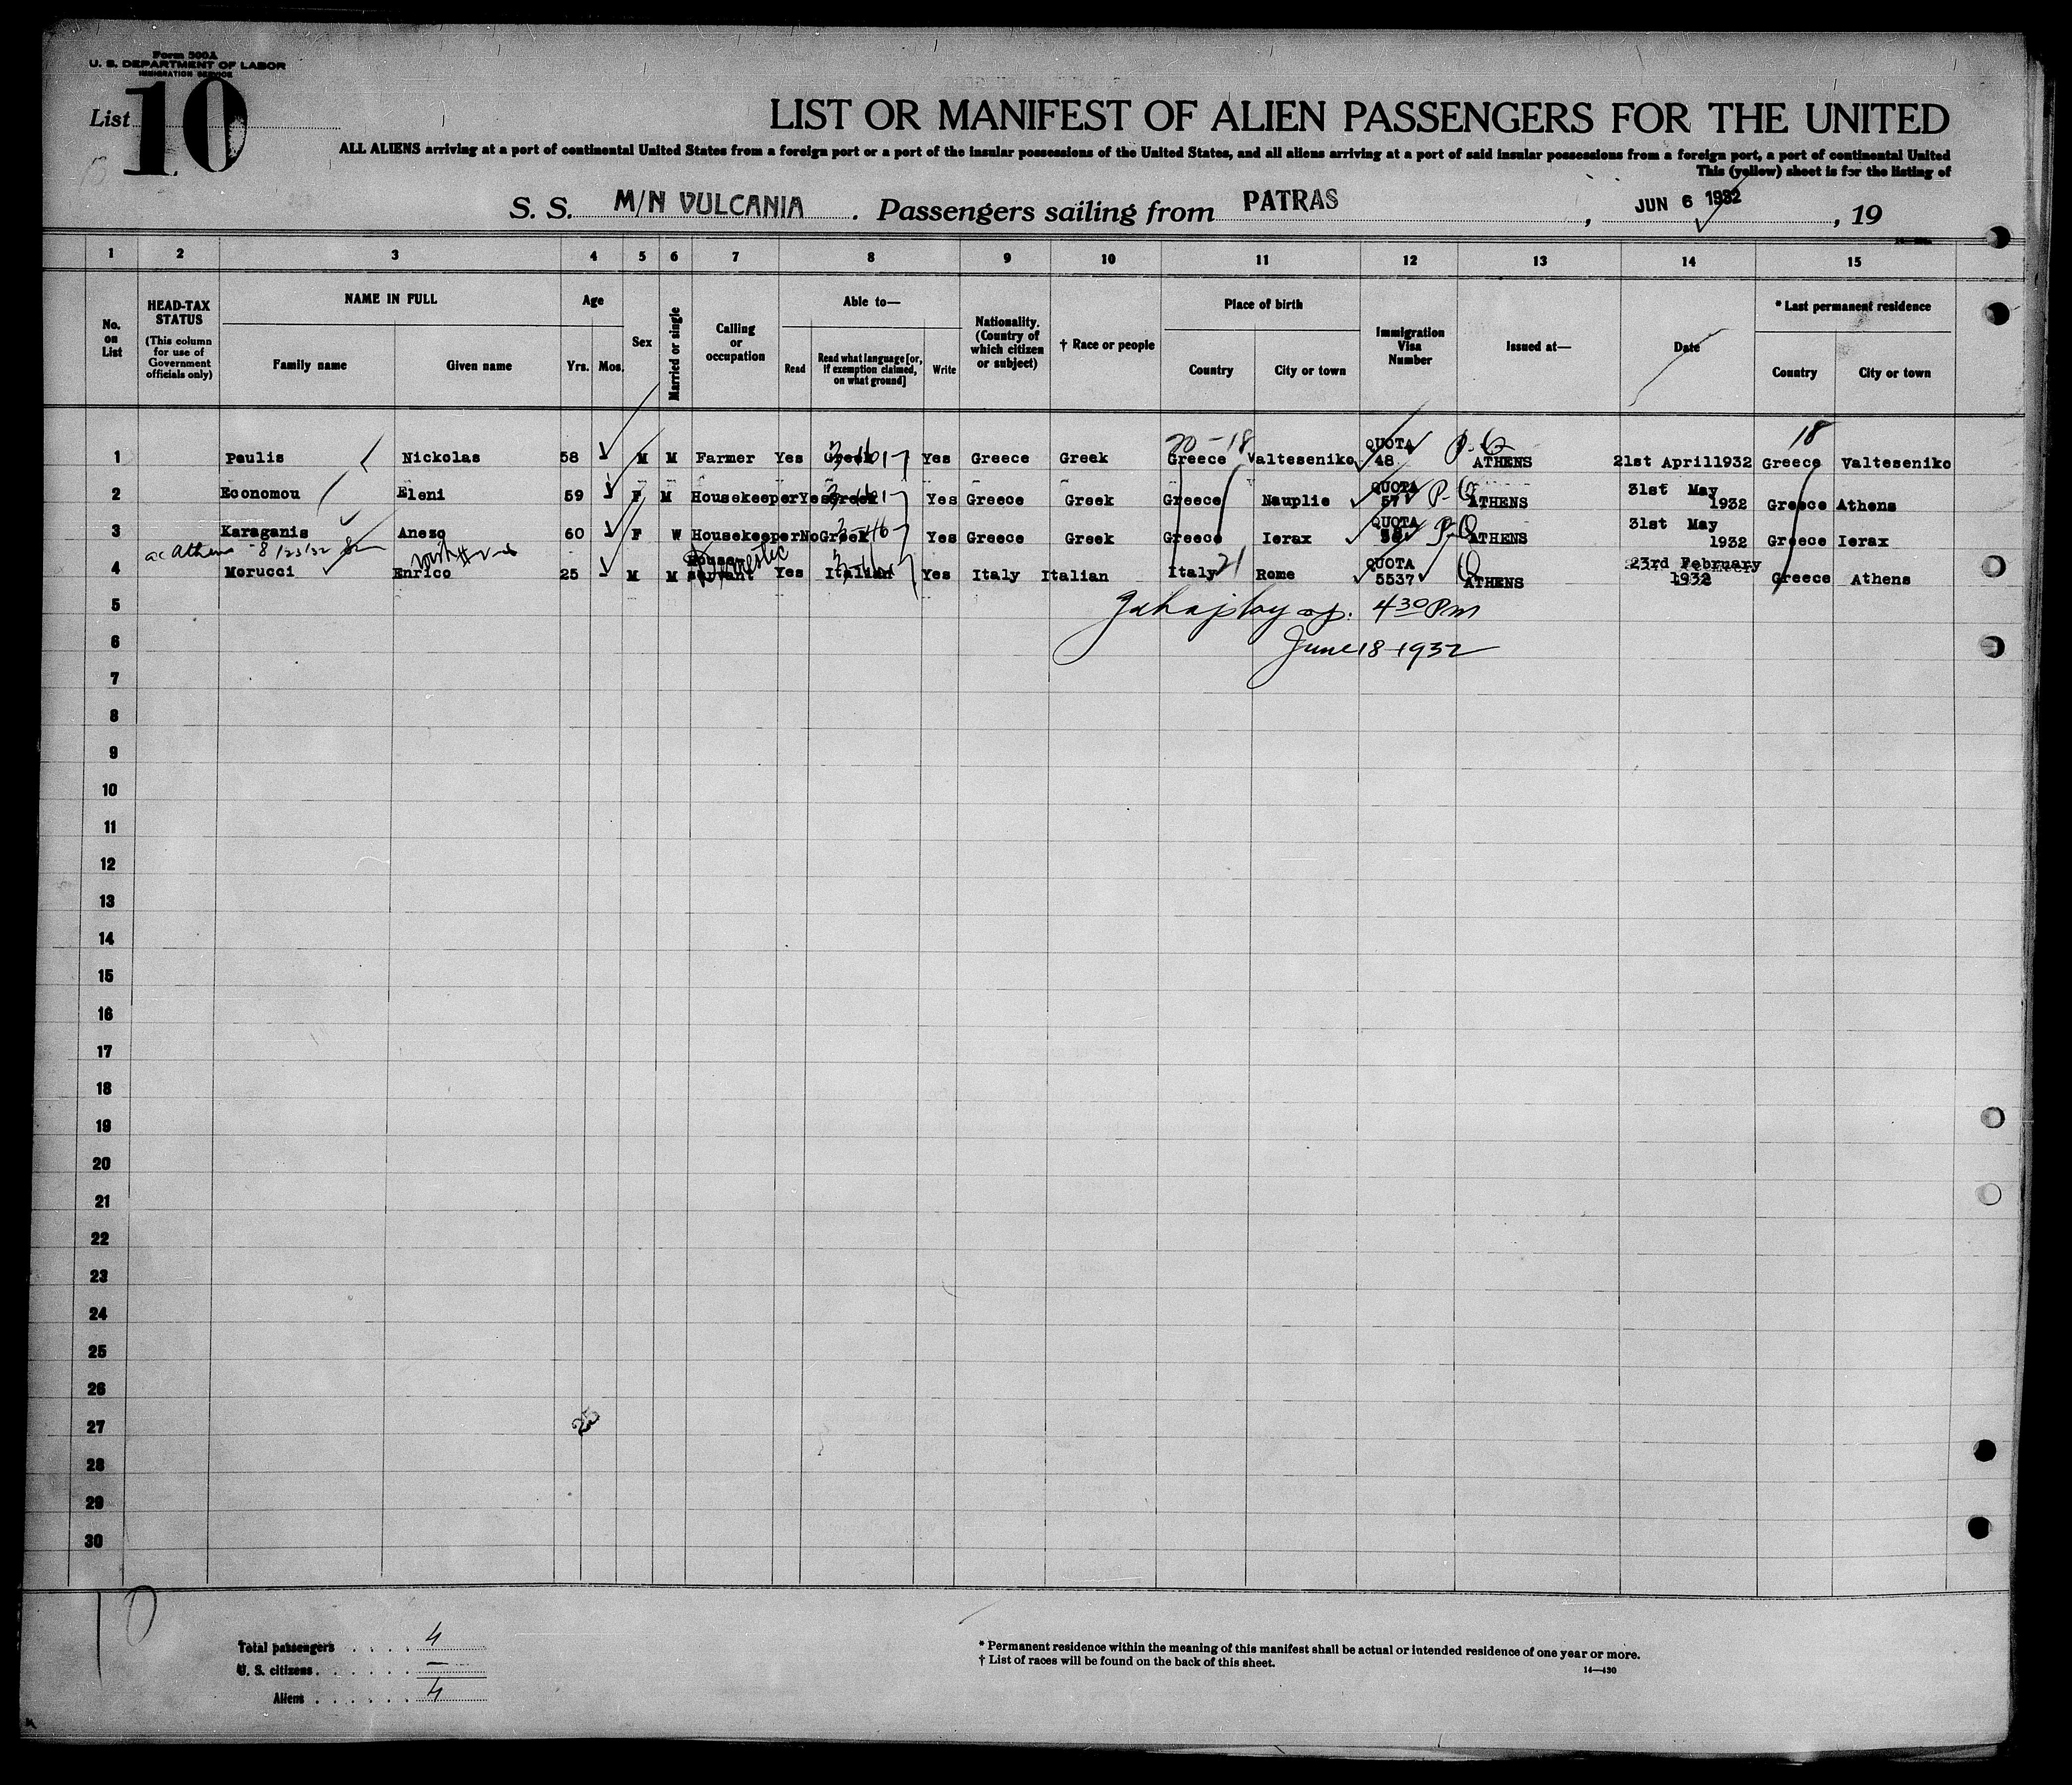 Form 500A
U. S. DEPARTMENT OF LABOR
IMMIGRATION SERVICE
List 10
LIST OR MANIFEST OF ALIEN PASSENGERS FOR THE UNITED
ALL ALIENS arriving at a port of continental United States from a foreign port or a port of the insular possessions of the United States, and all aliens arriving at a port of said insular possessions from a foreign port, a port of continental United
This (yellow) sheet is for the listing of
S. S. M/N VULCANIA . Passengers sailing from PATRAS , JUN 6 1932 , 19
1 2 3 4 5 6 7 8 9 10 11 12 13 14 15
No. on List
HEAD-TAX STATUS (This column for use of Government officials only)
NAME IN FULL
Family name Given name
Age
Yrs. Mos.
Sex
Married or single
Calling or occupation
Able to—
Read Read what language [or, if exemption claimed, on what ground] Write
Nationality. (Country of which citizen or subject)
† Race or people
Place of birth
Country City or town
Immigration Visa Number
Issued at—
Date
* Last permanent residence
Country City or town
20-18 18
1 Paulis Nickolas 58 M M Farmer Yes Greek Yes Greece Greek Greece Valteseniko QUOTA 48 P-Q ATHENS 21st April 1932 Greece Valteseniko
2 Economou Eleni 59 F M Housekeeper Yes Greek Yes Greece Greek Greece Nauplie QUOTA 57 P-Q ATHENS 31st May 1932 Greece Athens
3 Karaganis Anezo 60 F W Housekeeper No Greek Yes Greece Greek Greece Ierax QUOTA P-Q ATHENS 31st May 1932 Greece Ierax
Athens 8/23/32
4 Morucci Enrico 25 - M M House servant Domestic Yes Italian Yes Italy Italian Italy 21 Rome QUOTA 5537 Q ATHENS 23rd February 1932 Greece Athens
5
4 30 Pm
6
June 18-1932
7
8
9
10
11
12
13
14
15
16
17
18
19
20
21
22
23
24
25
26
27
28
29
30
10
Total passengers . . . . 4
U. S. citizens . . . . . . —
Aliens . . . . . . 4
* Permanent residence within the meaning of this manifest shall be actual or intended residence of one year or more.
† List of races will be found on the back of this sheet.
14—430